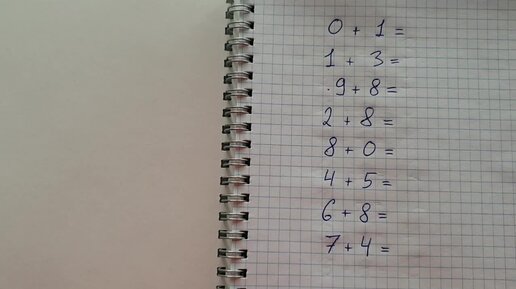 0 + 1 =
1 + 3 =
9 + 8 =
2 + 8 =
8 + 0 =
4 + 5 =
6 + 8 =
7 + 4 =